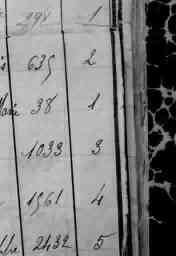 298 1
635 2
38 1
1033 3
1561 4
2432 5